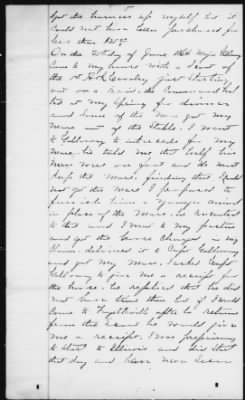 got the harness up myself but it
could not have been purchased for
less than
On the 20th day of June 1864 Maj Galloway
came to my house with a Scout of
the 1st Ark Cavalry just starting
out on a Scout. the Command halted
at my Spring for dinner
and Some of the Men got my
Mare out of the Stable. I went
to Galloway to intercede for my
Mare, he told me that half his
men were on foot and he must
keep the Mare. finding that I could
not get the Mare I proposed to
furnish him a younger animal
in place of the Mare. he consented
to this and I went to my pasture
and got the horse Charged in my
Claim. delivered it to Galloway
and got my Mare. I asked
Galloway to give me a receipt for
the horse. he replied that he did
not have time then but if I would
Come to Fayetteville after he returned
from the Scout he would give
me a receipt. I was preparing
to Start to Illinois and did Start
that day and have never seen